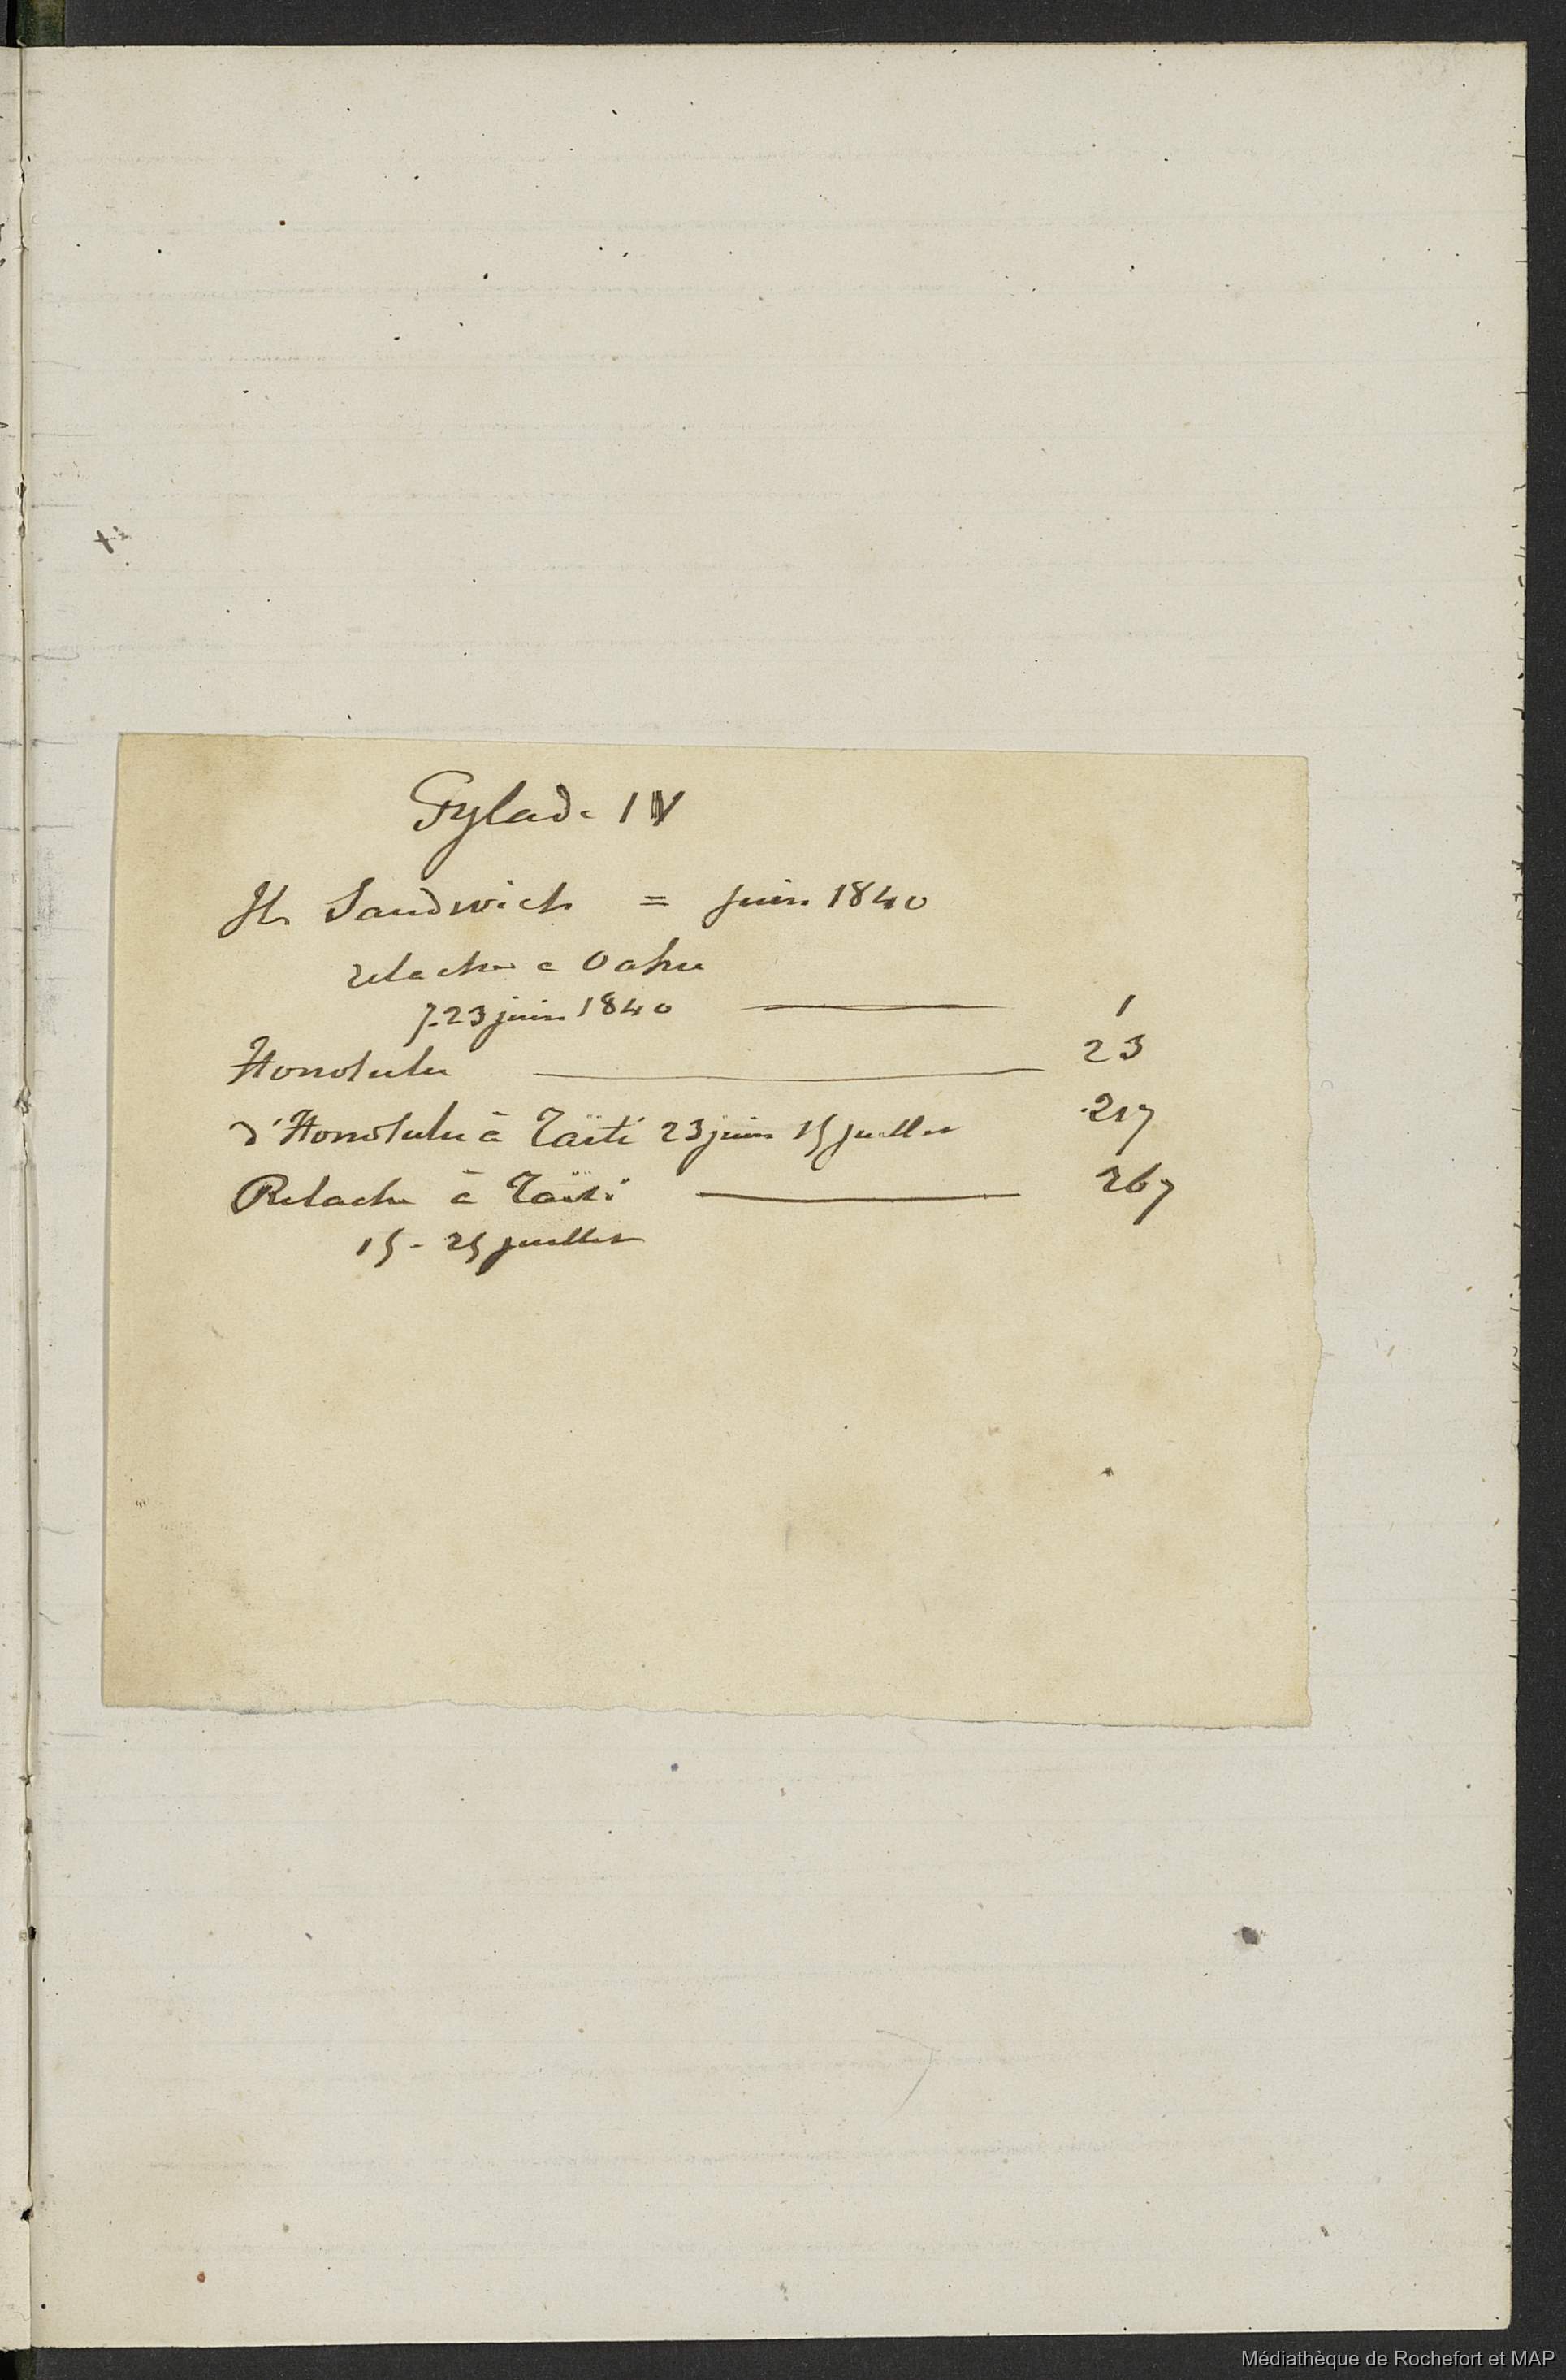 Pylade IV
Iles Sandwich = juin 1840
relache a Oahu
7-23 juin 1840 — 1
Honolulu — 23
d'Honolulu à Taïti 23 juin 15 juillet 217
Relache à Taïti — 267
15 - 25 juillet
Médiathèque de Rochefort et MAP